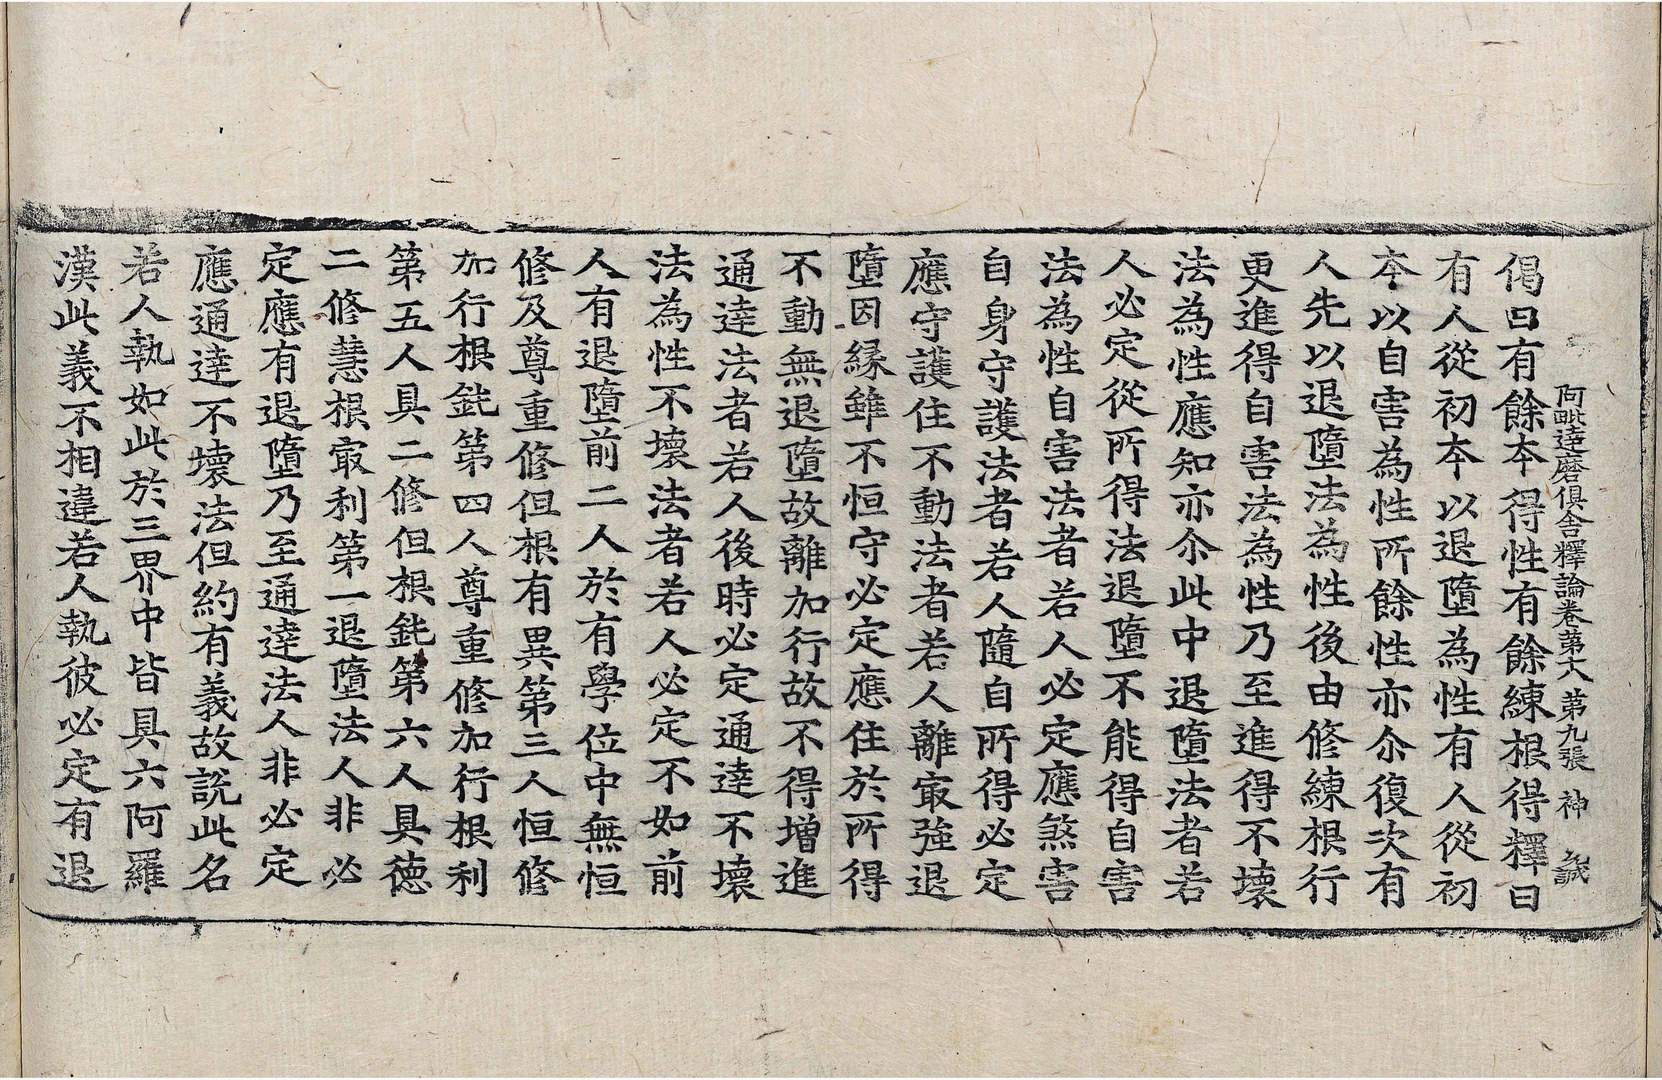 阿毗達磨俱舍釋論卷苐十八 苐九張 神 誠
偈曰有餘夲得性有餘練根得釋曰
有人從初夲以退墮為性有人從初
夲以自害為性所餘性亦尒復次有
人先以退墮法為性後由修練根行
更進得自害法為性乃至進得不壞
法為性應知亦尒此中退墮法者若
人必定從所得法退墮不能得自害
法為性自害法者若人必定應煞害
自身守護法者若人隨自所得必定
應守護住不動法者若人離㝡強退
墮因緣雖不恒守必定應住於所得
不動無退墮故離加行故不得增進
通達法者若人後時必定通達不壞
法為性不壞法者若人必定不如前
人有退墮前二人於有學位中無恒
修及尊重修但根有異第三人恒修
加行根鈍第四人尊重修加行根利
第五人具二修但根鈍第六人具德
二修慧根㝡利第一退墮法人非必
定應有退墮乃至通達法人非必定
應通達不壞法但約有義故說此名
若人執如此於三界中皆具六阿羅
漢此義不相違若人執彼必定有退